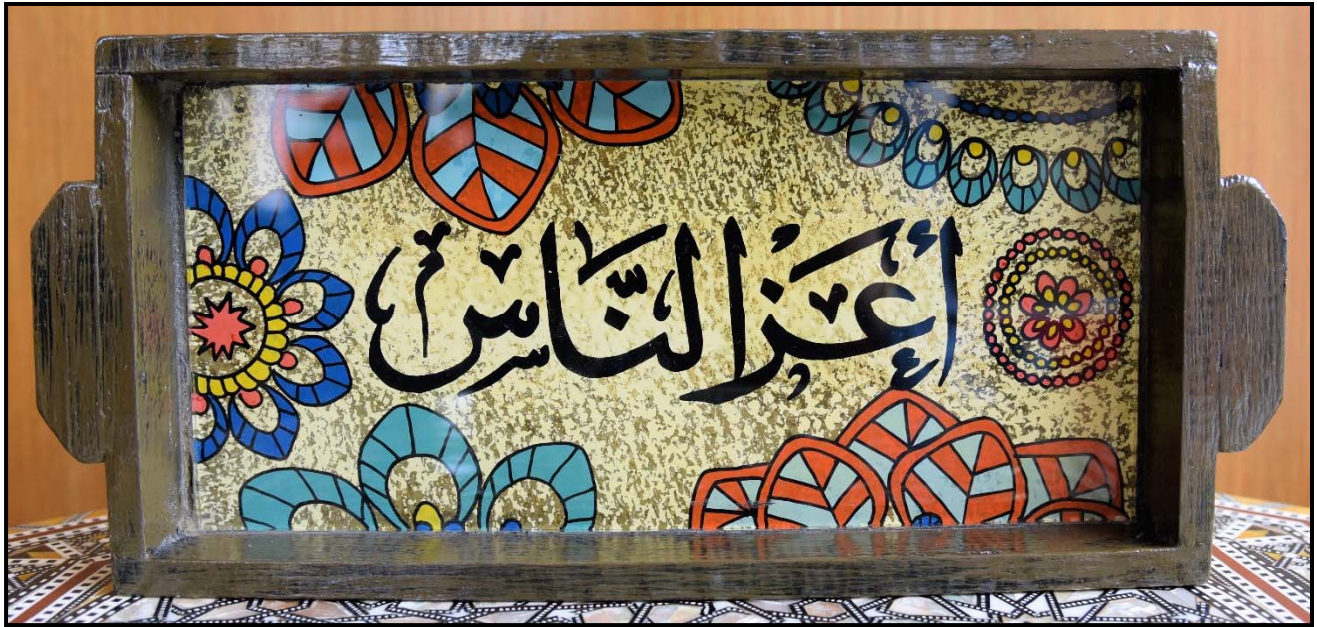 أعز الناس